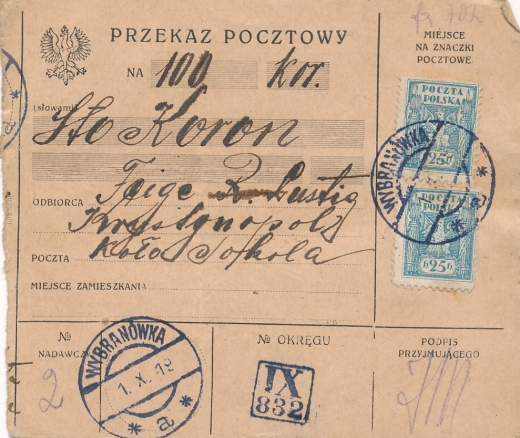 PRZEKAZ POCZTOWY
NA 100 kor.
(słowami)
Sto Koron
ODBIORCA Feige R. Lustig
Krystynopol
POCZTA koło Sokola
MIEJSCE ZAMIESZKANIA
MIEJSCE
NA ZNACZKI
POCZTOWE
POCZTA
POLSKA
25
WYBRANÓWKA
a
POCZTA
POLSKA
25
№
NADAWCZY
2
WYBRANÓWKA
1. X. 19
* a *
№ OKRĘGU
IX
832
PODPIS
PRZYJMUJĄCEGO